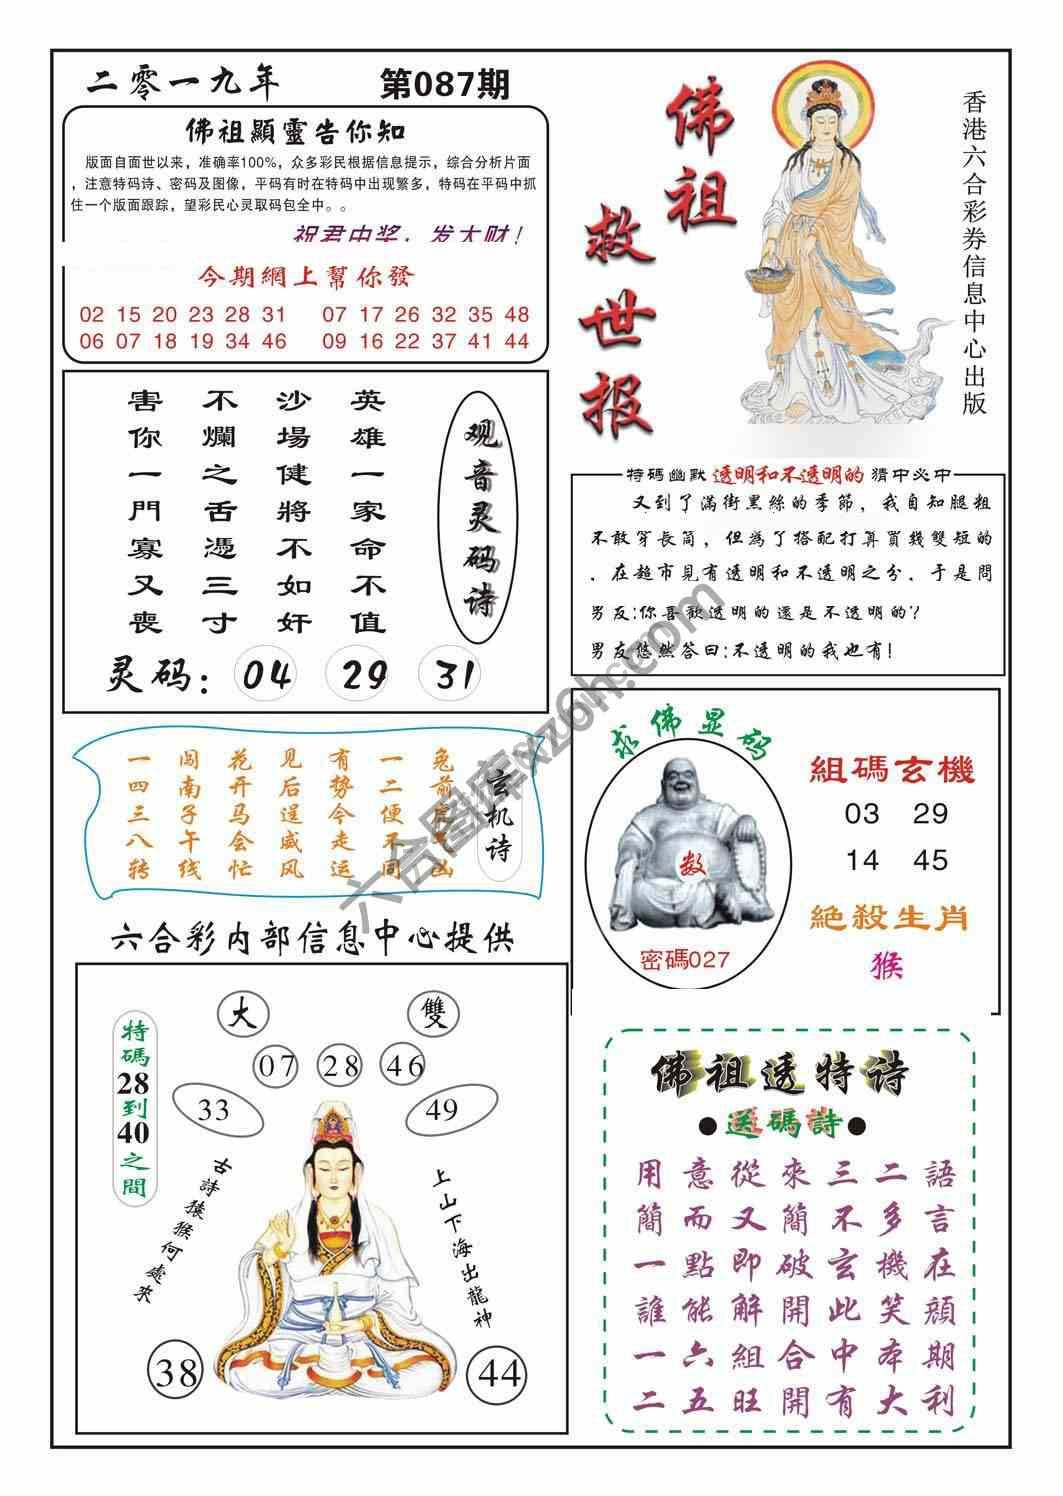 二零一九年 第087期
佛祖顯靈告你知
版面自面世以来，准确率100%，众多彩民根据信息提示，综合分析片面
，注意特码诗、密码及图像，平码有时在特码中出现繁多，特码在平码中抓
住一个版面跟踪，望彩民心灵取码包全中。。
祝君中奖，发大财！
今期網上幫你發
02 15 20 23 28 31 07 17 26 32 35 48
06 07 18 19 34 46 09 16 22 37 41 44
佛祖
救世报
香港六合彩券信息中心出版
观音灵码诗
英雄一家命不值
沙場健將不如奸
不爛之舌憑三寸
害你一門寡又喪
灵码：04 29 31
特碼幽默 透明和不透明的 猜中必中
又到了滿街黑絲的季節，我自知腿粗
不敢穿長筒，但為了搭配打算買幾雙短的
．在超市見有透明和不透明之分．于是問
男友:你喜歡透明的還是不透明的?
男友悠然答曰:不透明的我也有!
玄机诗
兔前虎后凶
一二便不同
有势今走运
见后逞威风
花开马会忙
闯南子午线
一四三八转
求佛显码
数
密碼027
組碼玄機
03 29
14 45
絕殺生肖
猴
六合彩内部信息中心提供
大 雙
07 28 46
33 49
特碼28到40之間
古詩猿猴何處來
上山下海出龍神
38 44
佛祖透特诗
●送碼詩●
用意從來三二語
簡而又簡不多言
一點即破玄機在
誰能解開此笑顔
一六組合中本期
二五旺開有大利
六合图库xz6h.com